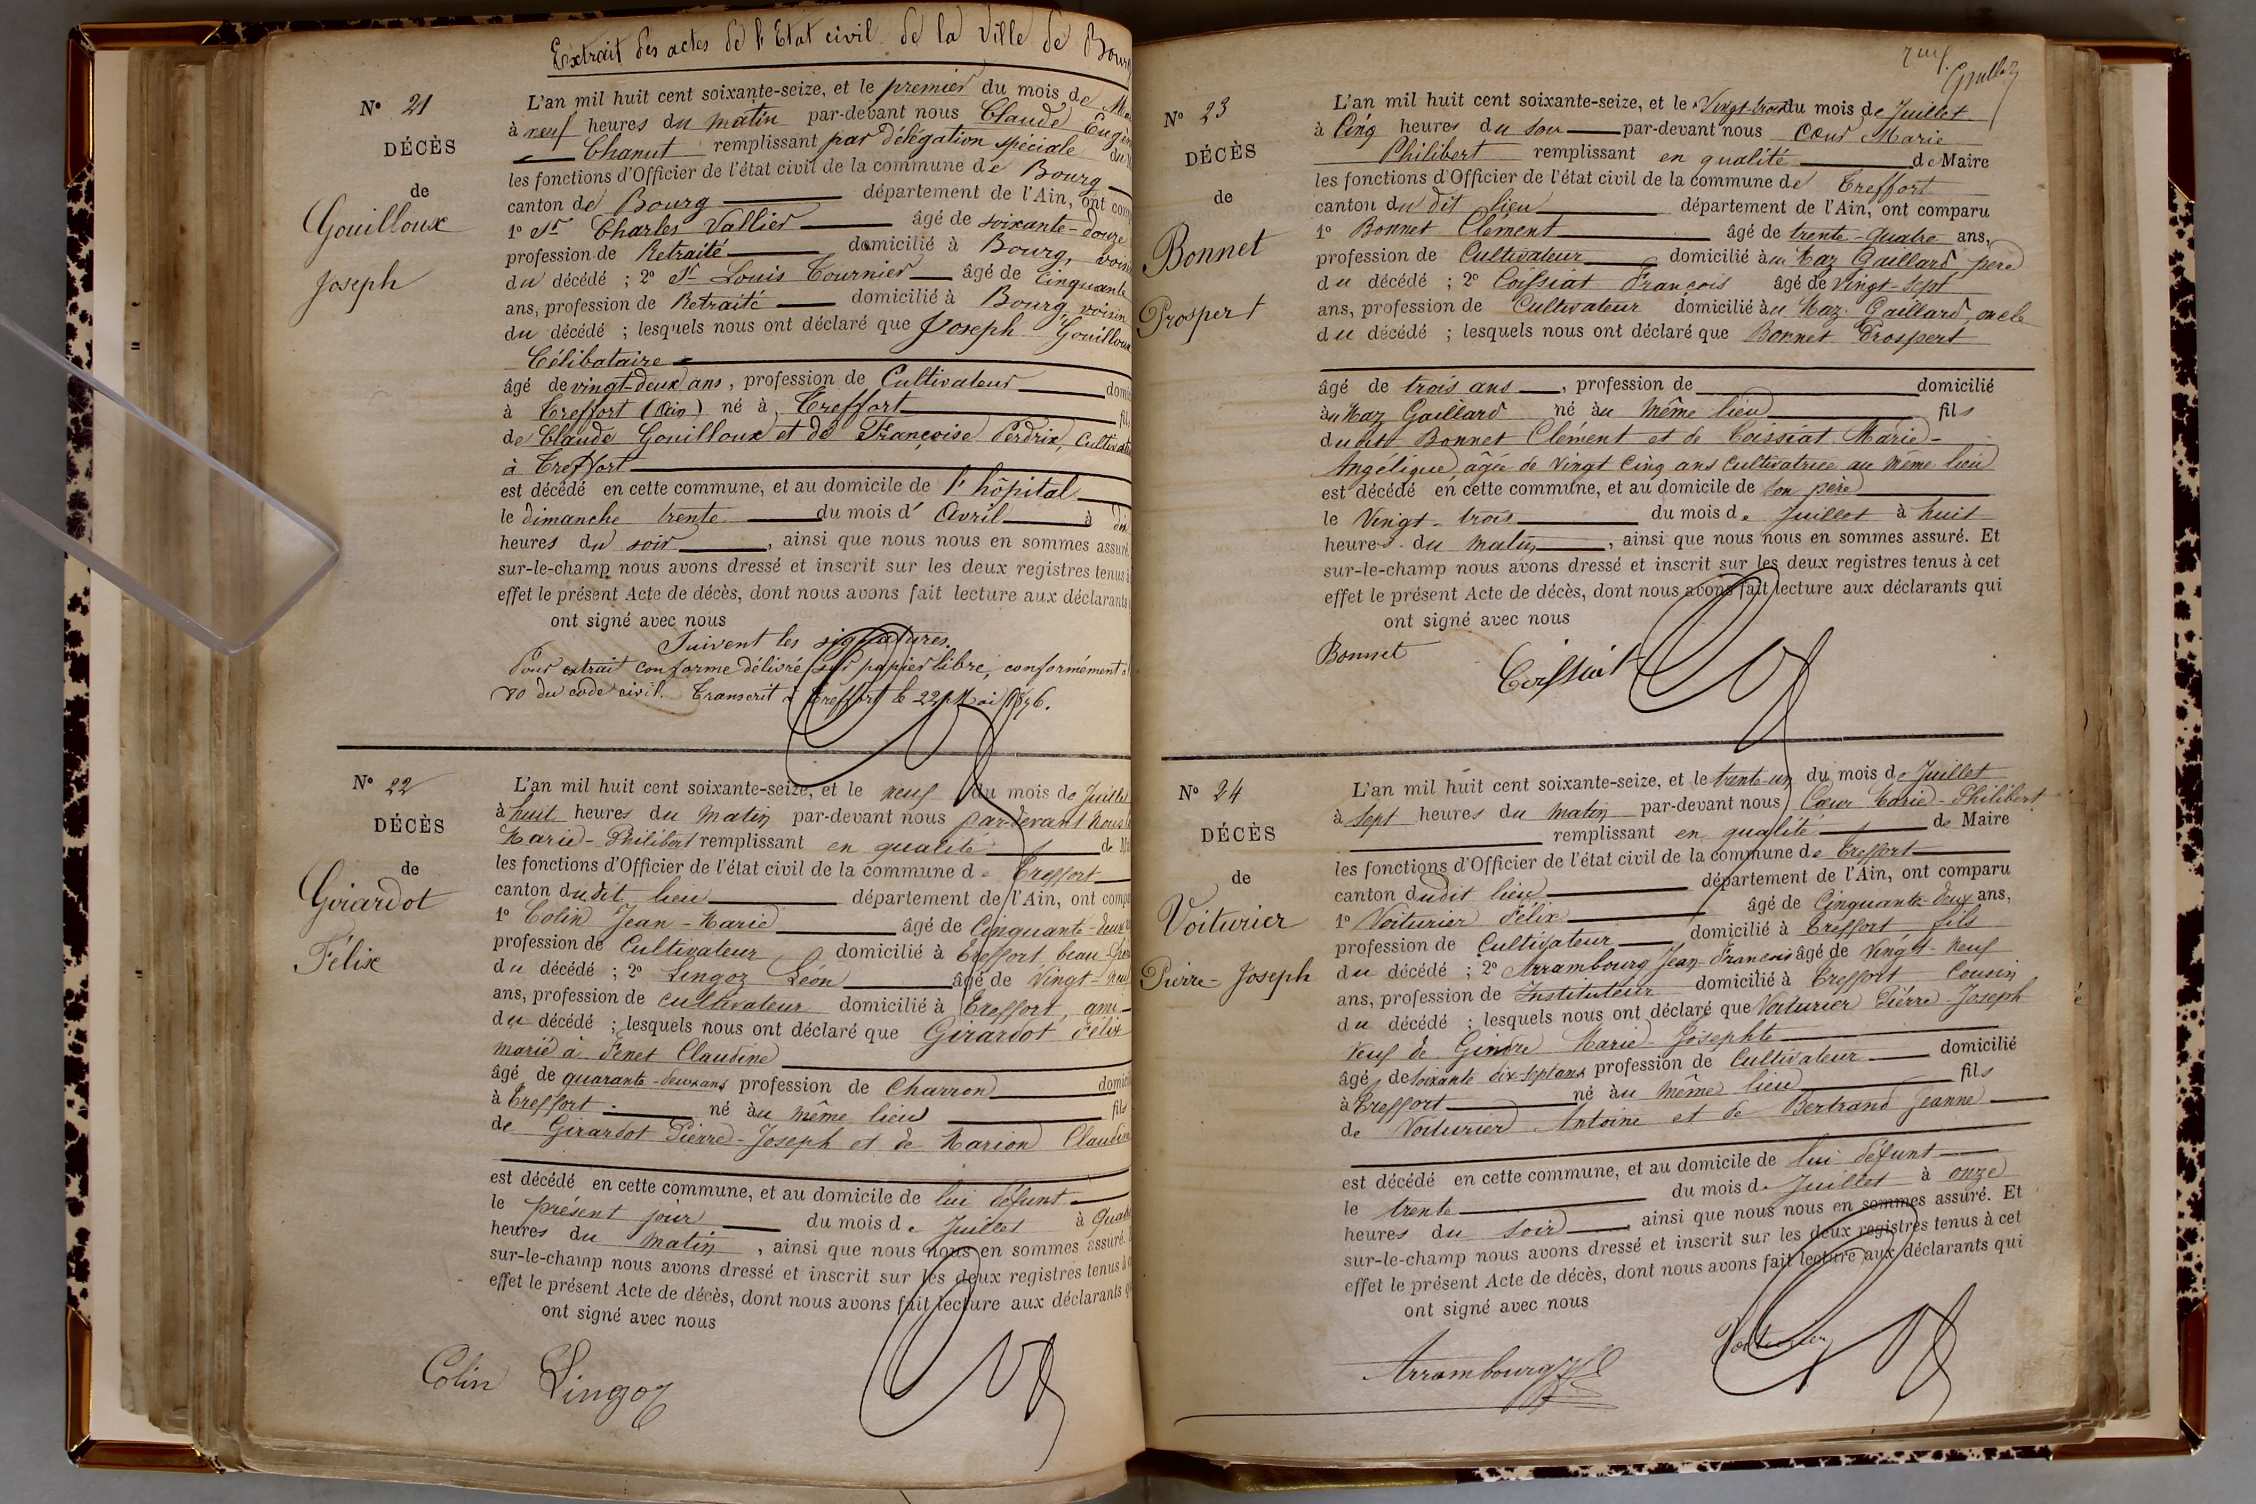 Extrait des actes de l'Etat civil de la Ville de Bourg
N° 21
DÉCÈS
de
Gouilloux
Joseph
L'an mil huit cent soixante-seize, et le premier du mois de
à neuf heures du matin par-devant nous Claude Eugèn
Chanut remplissant par délégation spéciale du
les fonctions d'Officier de l'état civil de la commune de Bourg
canton de Bourg département de l'Ain, ont com
1° Sr Charles Vallier âgé de soixante-douze
profession de Retraité domicilié à Bourg, voisin
du décédé ; 2° Sr Louis Tournier âgé de Cinquante
ans, profession de Retraité domicilié à Bourg, voisin
du décédé ; lesquels nous ont déclaré que Joseph Gouilloux
Célibataire
âgé de vingt-deux ans, profession de Cultivateur domi
à Treffort (Ain) né à Treffort fils
de Claude Gouilloux et de Françoise Perdrix, Cultivat
à Treffort
est décédé en cette commune, et au domicile de l'hôpital
le dimanche trente du mois d' Avril à dix
heures du soir, ainsi que nous nous en sommes assuré.
sur-le-champ nous avons dressé et inscrit sur les deux registres tenus à
effet le présent Acte de décès, dont nous avons fait lecture aux déclarants
ont signé avec nous
Suivent les signatures.
Pour extrait conforme délivré sur papier libre, conformément à
80 du code civil. Transcrit à Treffort le 22 Mai 1876.
N° 22
DÉCÈS
de
Girardot
Félix
L'an mil huit cent soixante-seize, et le neuf du mois de Juillet
à huit heures du matin par-devant nous par-devant nous
Marie-Philibert remplissant en qualité de M
les fonctions d'Officier de l'état civil de la commune de Treffort
canton dudit lieu département de l'Ain, ont comp
1° Colin Jean-Marie âgé de Cinquante-deux
profession de Cultivateur domicilié à Treffort, beau-frère
du décédé ; 2° Lingoz Léon âgé de Vingt-neuf
ans, profession de cultivateur domicilié à Treffort, ami
du décédé ; lesquels nous ont déclaré que Girardot Félix
marié à Fenet Claudine
âgé de quarante-deux ans profession de Charron domici
à Treffort né au même lieu fils
de Girardot Pierre-Joseph et de Marion Claudine
est décédé en cette commune, et au domicile de lui défunt
le présent jour du mois de Juillet à Quatre
heures du matin, ainsi que nous nous en sommes assuré.
sur-le-champ nous avons dressé et inscrit sur les deux registres tenus à
effet le présent Acte de décès, dont nous avons fait lecture aux déclarants
ont signé avec nous
Colin Lingoz
N° 23
DÉCÈS
de
Bonnet
Prospert
L'an mil huit cent soixante-seize, et le Vingt-trois du mois de Juillet
à Cinq heures du soir par-devant nous Cœur Marie
Philibert remplissant en qualité de Maire
les fonctions d'Officier de l'état civil de la commune de Treffort
canton du dit lieu département de l'Ain, ont comparu
1° Bonnet Clément âgé de trente-quatre ans,
profession de Cultivateur domicilié au Maz Gaillard père
du décédé ; 2° Coissiat François âgé de Vingt-sept
ans, profession de Cultivateur domicilié au Maz Gaillard, oncle
du décédé ; lesquels nous ont déclaré que Bonnet Prospert
âgé de trois ans, profession de domicilié
au Maz Gaillard né au même lieu fils
dudit Bonnet Clément et de Coissiat Marie-
Angélique âgée de Vingt Cinq ans cultivatrice au même lieu
est décédé en cette commune, et au domicile de son père
le Vingt-trois du mois de Juillet à huit
heures du matin, ainsi que nous nous en sommes assuré. Et
sur-le-champ nous avons dressé et inscrit sur les deux registres tenus à cet
effet le présent Acte de décès, dont nous avons fait lecture aux déclarants qui
ont signé avec nous
Bonnet Coissiat
N° 24
DÉCÈS
de
Voiturier
Pierre-Joseph
L'an mil huit cent soixante-seize, et le trente-un du mois de Juillet
à sept heures du matin par-devant nous Cœur Marie-Philibert
remplissant en qualité de Maire
les fonctions d'Officier de l'état civil de la commune de Treffort
canton dudit lieu département de l'Ain, ont comparu
1° Voiturier Félix âgé de Cinquante-deux ans,
profession de Cultivateur domicilié à Treffort fils
du décédé ; 2° Arrambourg Jean-François âgé de Vingt-neuf
ans, profession de Instituteur domicilié à Treffort Cousin
du décédé ; lesquels nous ont déclaré que Voiturier Pierre-Joseph
veuf de Gindre Marie-Josephte
âgé de soixante dix-sept ans profession de Cultivateur domicilié
à Treffort né au même lieu fils
de Voiturier Antoine et de Bertrand Jeanne
est décédé en cette commune, et au domicile de lui défunt
le trente du mois de Juillet à onze
heures du soir, ainsi que nous nous en sommes assuré. Et
sur-le-champ nous avons dressé et inscrit sur les deux registres tenus à cet
effet le présent Acte de décès, dont nous avons fait lecture aux déclarants qui
ont signé avec nous
Arrambourg Voiturier